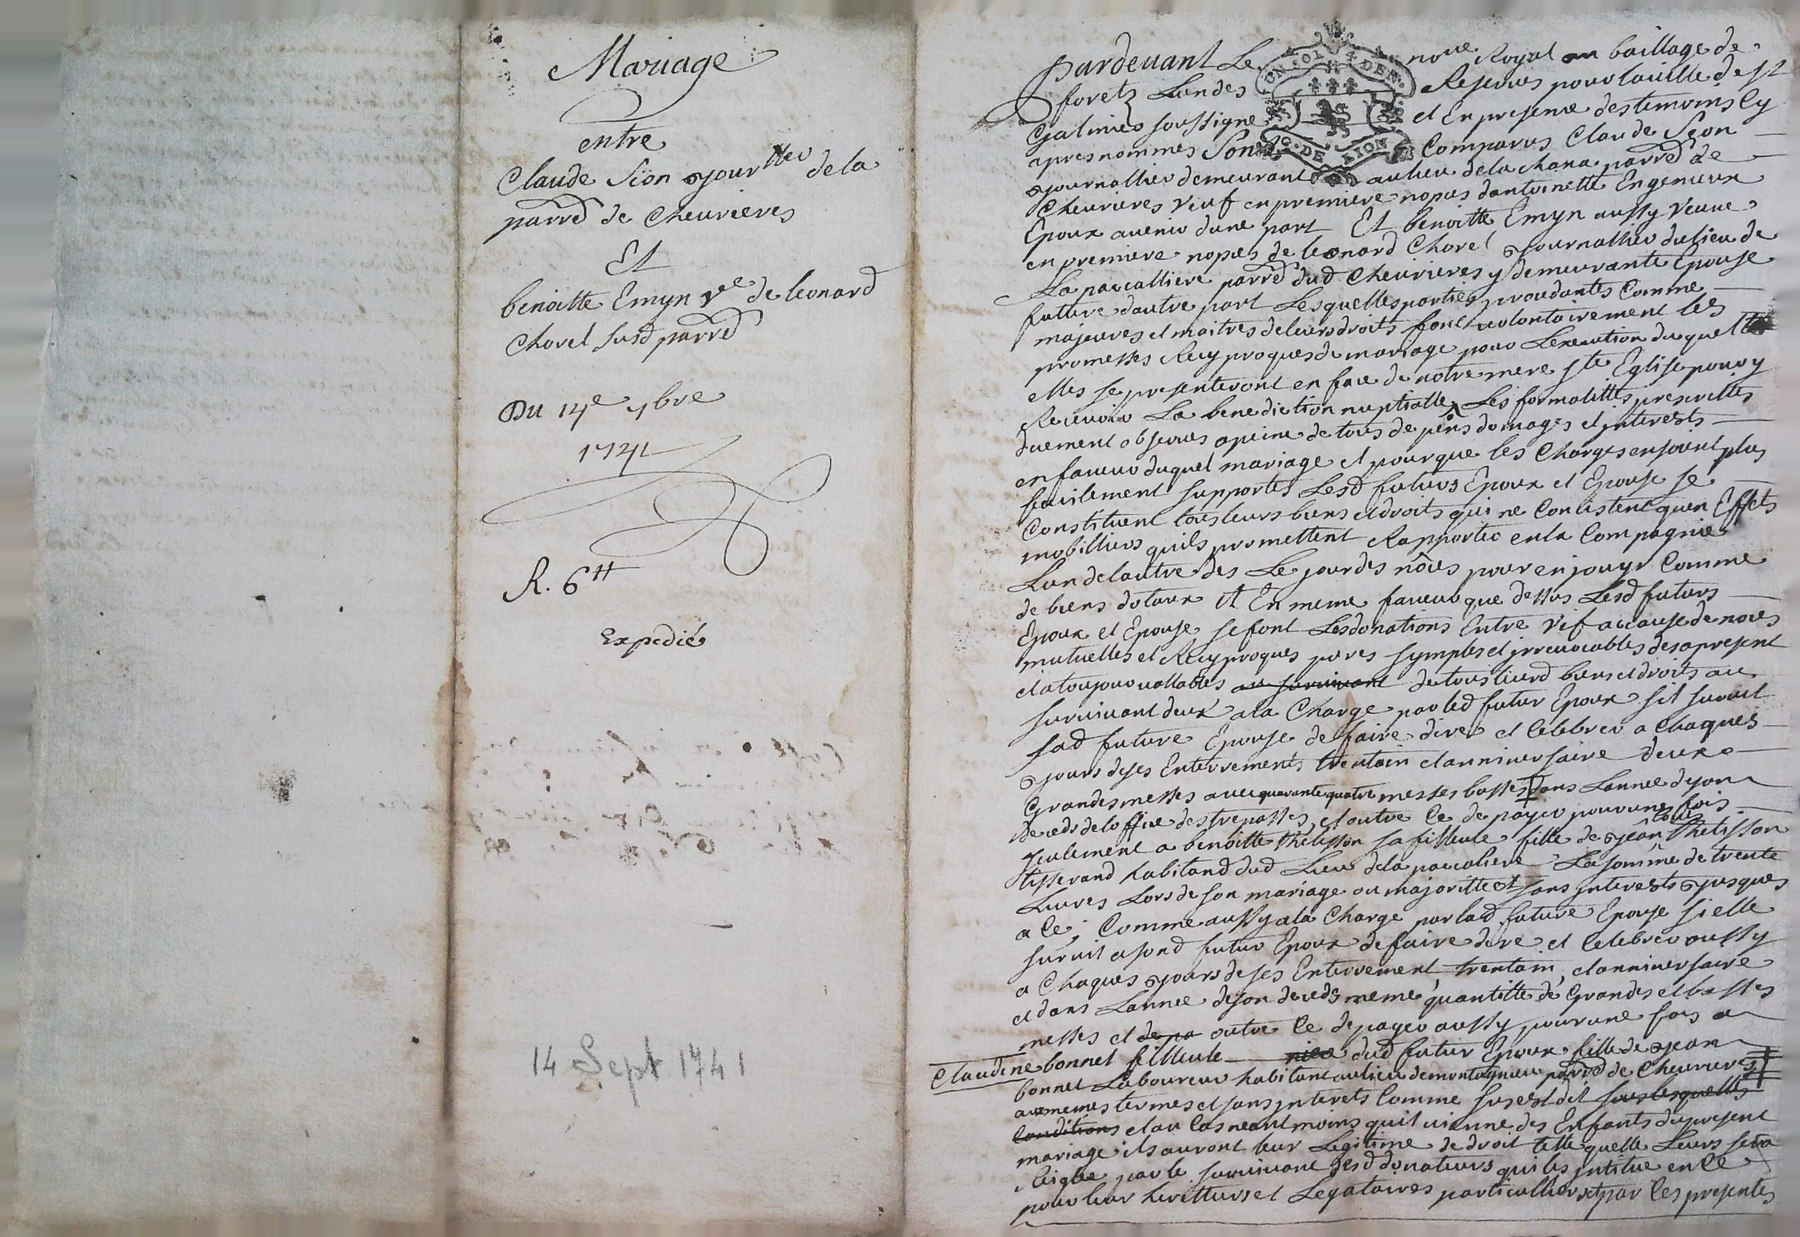 Mariage
entre
Claude Sion Journllier de la
parr̃ de Cheurieres
Et
benoitte Emyn Ve de leonard
Chovel susd parr̃
Du 14e 7bre
1741
R. 6tt
Expedié
14 Sept 1741
Pardevant Le nore Royal au baillage de
forets Lun des Reserves pour la ville de St
Galmier soussigné et En presence des temoins cy
apres nommes Sont Comparus Claude Sion
Journallier demeurant au lieu de la chana parr̃ de
Cheurieres veuf en premiere nopces dantoinette Engenieux
Epoux avenir dune part Et benoitte Emyn aussy veuve
en premiere nopces de leonard Chovel Journallier du lieu de
La pacalliere parr̃ dud Cheurieres y demeurante Epouse
future dautre part Lesquelles parties procedantes Comme
majeures et maitres de leurs droits font volontairement les
promesses Reciproques de mariage pour Lexecution duquel
elles se presenteront en face de notre mere Ste Eglise pour y
Recevoir La benediction nuptialle Les formalittés prescrittes
duement observées a peine de tous depens domages et interests
en faveur duquel mariage et pour que les Charges en soient plus
facilement supportés Lesd futurs Epoux et Epouse se
Constituent tous leurs biens et droits qui ne Consistent quen Effets
mobilliers quils promettent Rapporter en la Compagnie
Lun de lautre des Le jour des nôces pour en jouyr Comme
de biens dotaux Et En meme faveur que dessus Lesd futurs
Epoux et Epouse se font Les donations Entre vif a cause de noces
mutuelles et Reciproques pures symples et irrevocables des a present
et a toujours vallables au survivant de tous leursd biens et droits au
survivant deux a la Charge par led futur Epoux sil survit
sad future Epouse de faire dire et Celebrer a Chaques
Jours de ses Enterrements trentain et anniversaire deux
Grandes messes avec quarante quatre messes basses dans Lannee de son
deceds de loffice des trepasses, et outre Ce de payer pour une fois
seulement a benoitte Thelisson sa filleule fille de Jean Thelisson
tisserand habitand dud Lieu de la pacaliere La somme de trente
Livres Lors de son mariage ou majoritté et sans interests Jusques
a Ce; Comme aussy a la Charge par lad future Epouse si elle
survit a sond futur Epoux de faire dire et Celebrer aussy
a Chaques Jours de ses Enterrement trentain, et anniversaire
et dans Lannee de son deceds meme quantitté de Grandes et basses
messes et de pa outre Ce de payer aussy pour une fois a
Claudine bonnet filleule niece dud futur Epoux fille de Jean
bonnet Laboureur habitant au lieu de montagnieu parr̃ de Cheurieres
aux memes termes et sans interets Comme sus est dit sous lesquelles
Conditions et au Cas neantmoins quil vienne des Enfants du present
mariage ils auront leur Legitime de droit telle quelle Leurs sera
Reiglée par le survivant desd donateurs qui les institue en Ce
pour leur heritiers et Legataires particulliers et par Ces presentes